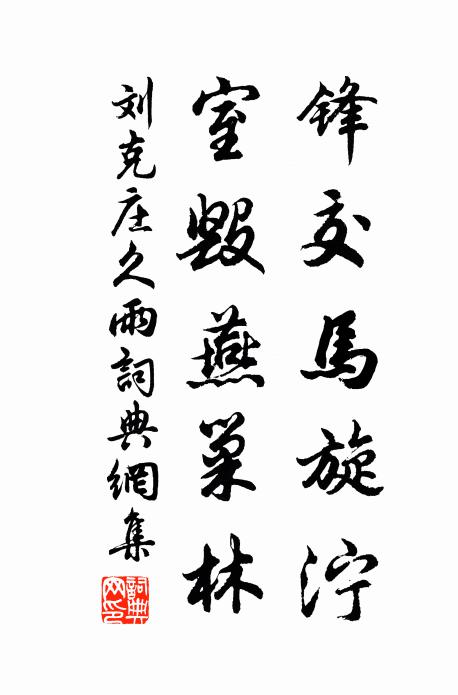 锋交馬旋泞
室毀燕巢林
刘克庄久雨詞典網集
詞典網印